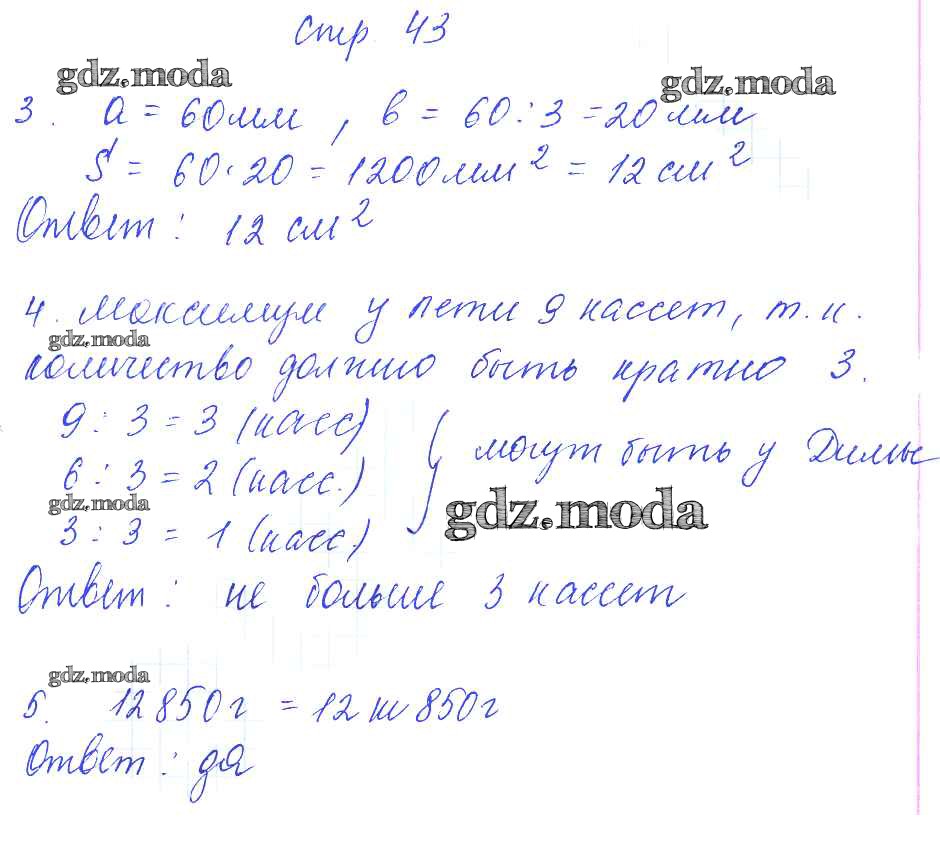 стр. 43
gdz.moda
gdz.moda
3. a = 60 мм, в = 60 : 3 = 20 мм
S = 60 · 20 = 1200 мм² = 12 см²
Ответ: 12 см²
4. Максимум у пети 9 кассет, т.к.
gdz.moda
количество должно быть кратно 3.
9 : 3 = 3 (касс)
6 : 3 = 2 (касс.) } могут быть у Димы
gdz.moda
gdz.moda
3 : 3 = 1 (касс.)
Ответ: не больше 3 кассет
gdz.moda
5. 12850г = 12 кг 850г
Ответ: да